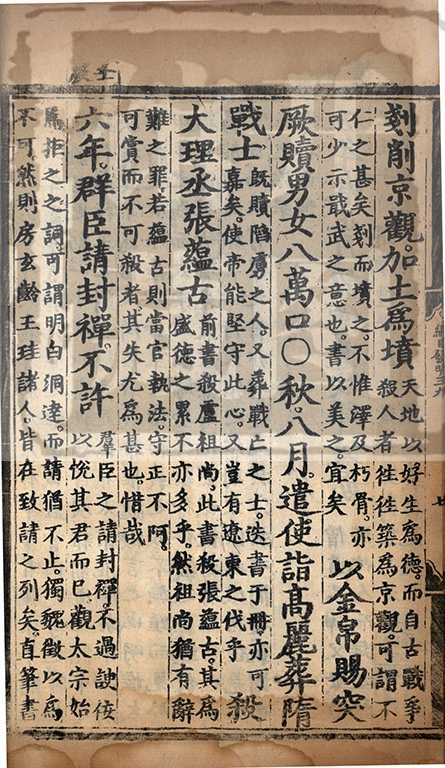 剗削京觀。加土爲墳
天地以好生爲德。而自古戰爭
殺人者徃徃築爲京觀。可謂不
仁之甚矣。剗而墳之。不惟澤及朽骨。亦
可少示戢武之意也。書以美之。宜矣
以金帛賜突
厥贖男女八萬口○秋。八月。遣使詣高麗葬隋
戰士
旣贖陷虜之人。又葬戰亡之士。迭書于冊。亦可
嘉矣。使帝能堅守此心。又豈有遼東之伐乎
殺
大理丞張蘊古
前書殺盧祖尚。此書殺張蘊古。其爲
盛德之累不亦多乎。然祖尚猶有辭
難之罪。若蘊古則當官執法。守正不阿。
可賞而不可殺者。其失尤爲甚也。惜哉
六年。群臣請封禪。不許
羣臣之請封禪。不過諛佞
以悅其君而已。觀太宗始
爲拒之之詞。可謂明白洞達。而請猶不止。獨魏徵以爲
不可。然則房玄齡王珪諸人。皆在致請之列矣。直筆書